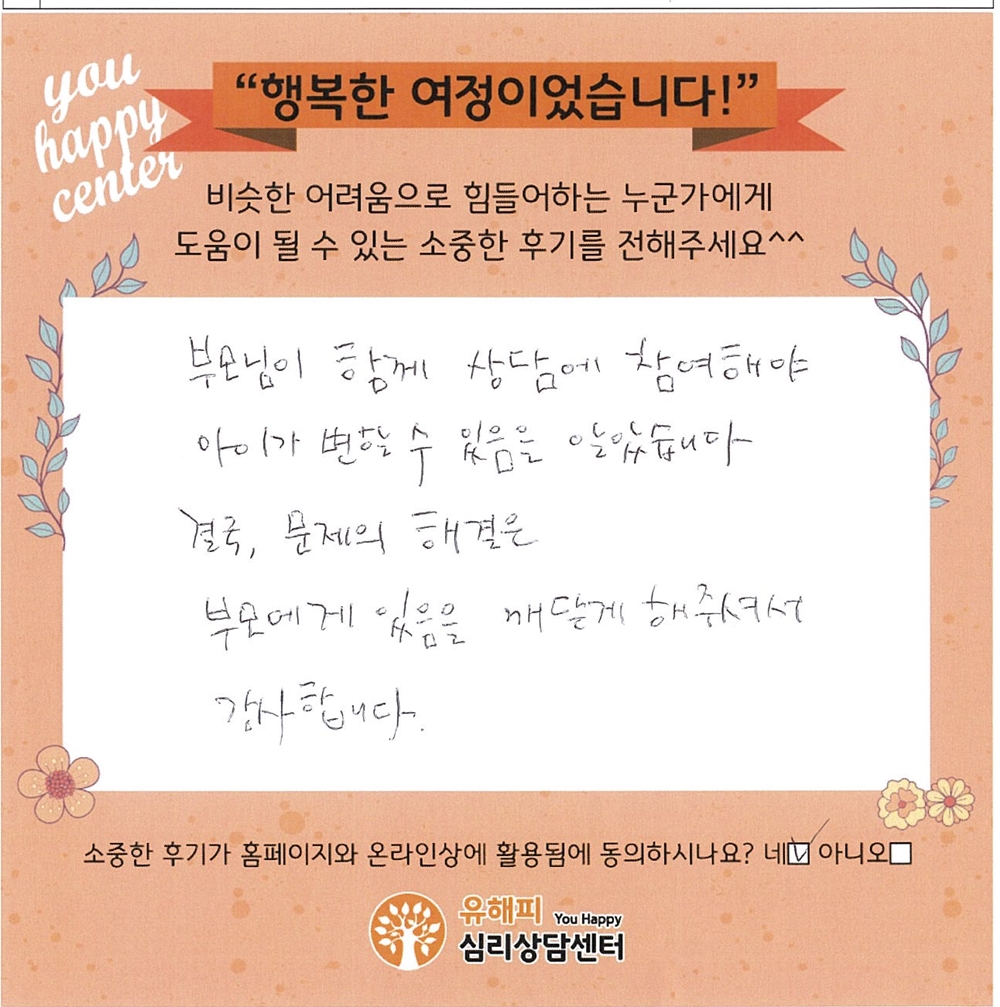 you
happy
center
“행복한 여정이었습니다!”
비슷한 어려움으로 힘들어하는 누군가에게
도움이 될 수 있는 소중한 후기를 전해주세요^^
부모님이 함께 상담에 참여해야
아이가 변할 수 있음을 알았습니다
결국, 문제의 해결은
부모에게 있음을 깨닫게 해주셔서
감사합니다.
소중한 후기가 홈페이지와 온라인상에 활용됨에 동의하시나요? 네☑ 아니오☐
유해피 You Happy
심리상담센터